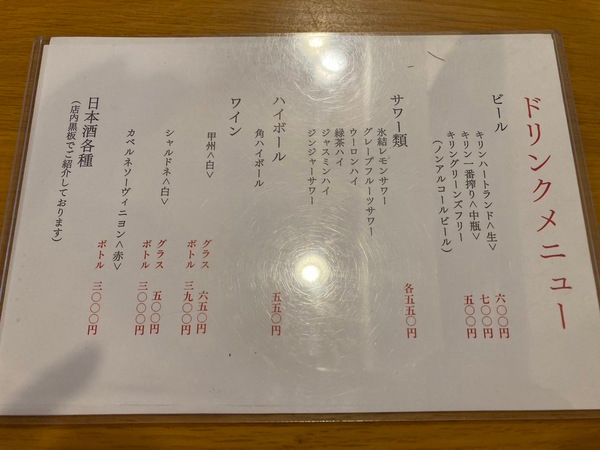 ドリンクメニュー
ビール
キリンハートランド<生> 六〇〇円
キリン一番搾り<中瓶> 七〇〇円
キリングリーンズフリー 五〇〇円
(ノンアルコールビール)
サワー類 各五五〇円
氷結レモンサワー
グレープフルーツサワー
ウーロンハイ
緑茶ハイ
ジャスミンハイ
ジンジャーサワー
ハイボール
角ハイボール 五五〇円
ワイン
甲州<白> グラス 六五〇円
ボトル 三九〇〇円
シャルドネ<白> グラス 五〇〇円
ボトル 三〇〇〇円
カベルネソーヴィニヨン<赤> ボトル 三〇〇〇円
日本酒各種
(店内黒板でご紹介しております)